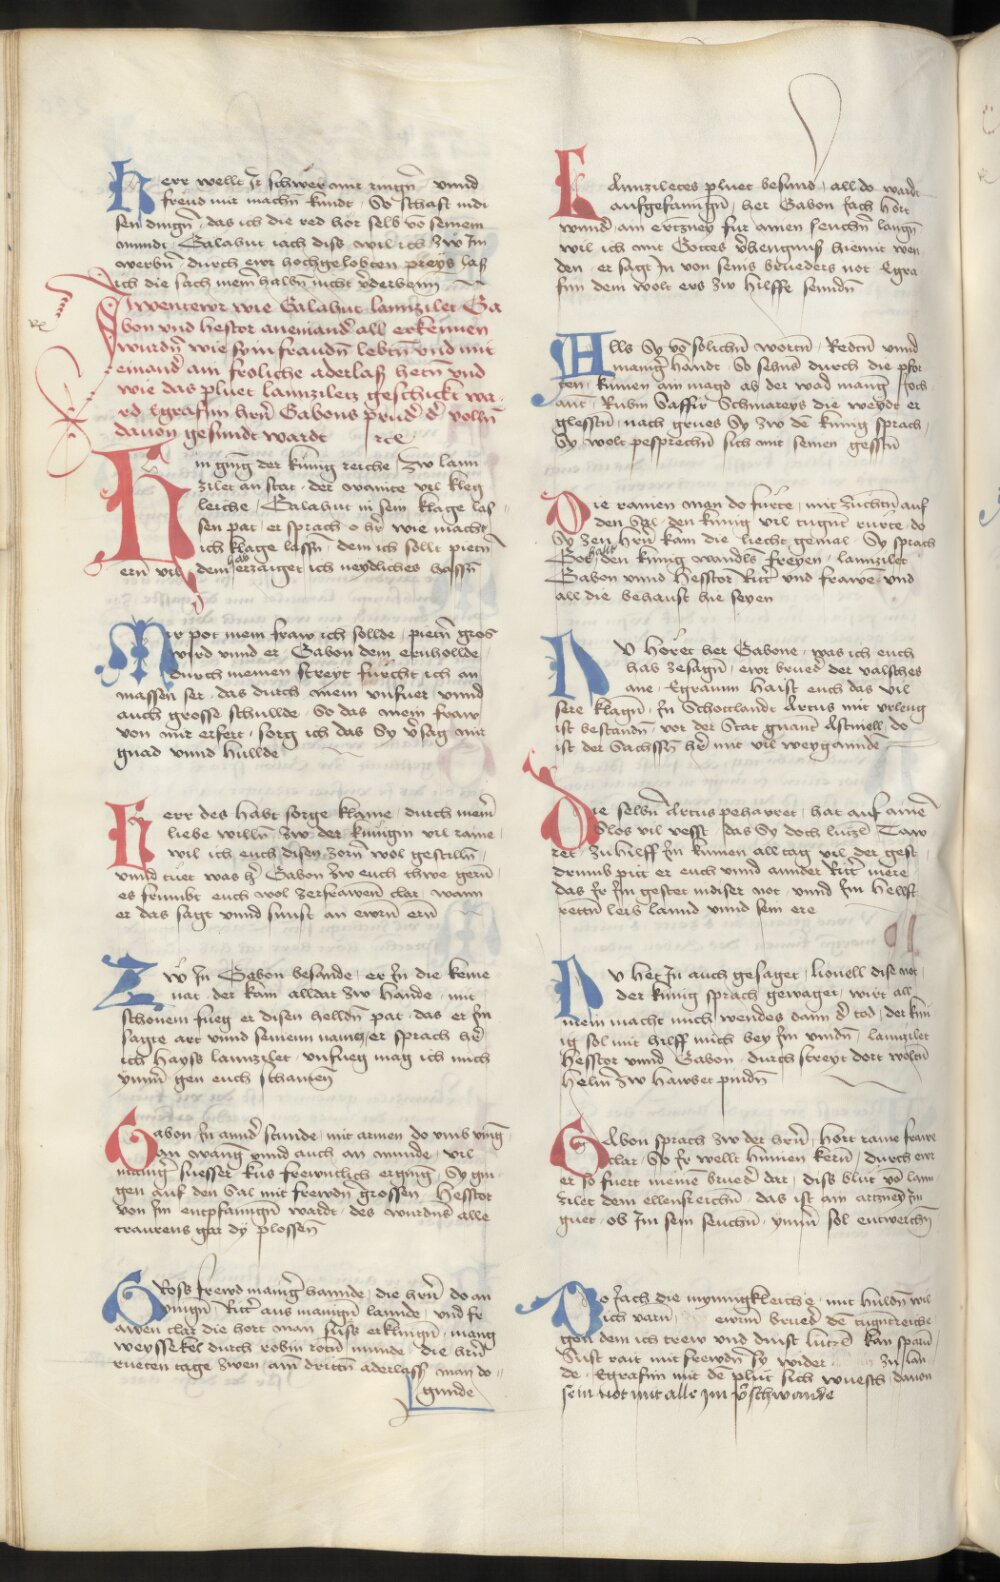 Herr wellt Ir schwer mir ringn̄ vnnd
freud mir machn̄ kundt · So schafft mdi
sen dingn̄ · das ich die red hor selb vō seinem
munndt · Galahut iach diss wil ich zw Im
werbn̄ durch ewr hochgelobten preys las
ich die sach meim̄ halbn̄ nicht v̄derbenn
Awentewr wie Galahut lannzilet Ga
bon vnd hestor aneinand̄ all erkennen
wurdn̄ wie sy in fraudn̄ lebtn̄ vnd mit
einand̄ ain froliche aderlaß hetn̄ vnd
wie das pluet lannziletz geschickt wa
rd Egrafim hrn̄ Gabons prud̄ d̄ volln̄
dauon gesundt wardt rce
Hin ging der kunig reiche · zw lann
zilet an stat · der wainte vil kleg
leiche · Galahut in sein klage las
sen pat · er sprach o hr̄ wie macht
ich klage lassn̄ · dem ich sollt pietn̄
ern̄ vil · dem hab erzaiget ich neydliches hassn̄
Mir pot mein fraw ich sollde · pietn̄ gros
wird vnnd er · Gabon dem ern hollde
durch meinen streyt furcht ich an
massen ser · das durch mein vnfuer vnnd
auch grosse schullde · So das mein fraw
von mir erfert · sorg ich das Sy v̄sag mir
gnad vnnd hullde
Herr des habt sorge klaine · durch mein̄
liebe willn̄ zw der kunigin vil raine ·
wil ich euch disen zorn̄ wol gestilln̄ ·
vnnd tuet was hr̄ Gabon zw euch thwe gern̄ ·
es frumbt euch wol zer frawen̄ clar · wann
er das sagt vnnd sunst an ewrn̄ ern̄
Zw In Gabon besande · er In die keme
nat · der kam alldar zw hande · mit
schonem fueg er disen helldn̄ pat · das er Im
sagte art vnnd seinenn namen er sprach hr̄
ich hayss lannzilet · vnfueg mag ich mich
ymm̄ gen euch schamen̄
Gabon In annd̄ stunde · mit armen do vmb ving ·
an wang vnnd auch an munde · vil
maniḡ suesser kus frewntlich erging · Sy gin
gen auf den Sal mit frewdn̄ grossen · hesstor
von Im entpfanngn̄ wardt · des wurdn̄ alle
traurens gar dy plossen̄
Gross frewd maniḡ hannde · die hrn̄ do an
vingn̄ Ritt̄ aus manign̄ lannde · vnd fr
awen clar die hort man suss erklingn̄ · mang
weyssekel durch robin rotn̄ munde · die hrn̄
rueten tage zwen · am dritn̄ aderlass man do
gunde
Lannziletes pluet besund · all do wardt
aufgefanngn̄ · her Gabon iach hort
wunnd̄ · ain ertzney fur ainen seuchn̄ langn̄
wil ich mit Gottes v̄hengnuß hiemit wen
den · er sagt In von seins brueders not Egra
fim dem wolt ers zw hilffe senndn̄
Alls Sy vō solichn̄ wortn̄ · Redtn̄ vnnd
maniḡ handt · So sehns durch die pfor
ten · kumen ain magd ab der wad mang Joch
ant · Rubin Saffir Schmareys die weydt er
glesstn̄ · nach grues Sy zw dē kunig sprach ·
Sy wolt pesprechn̄ sich mit seinen gesstn̄
Die rainen man do furte · mit zuchtn̄ auf
den Sal · den kunig vil tugnt rurte · do
Sy zen hrn̄ kam die liecht gemal · Sy sprach
Got halt den kunig wandls freyen · lannzilet
Gabon vnnd hesstor Ritt̄ vnd frawe · vnd
all die behaust hie seyen
Nu horet her Gabone · was ich euch
hab zesagn̄ · ewr brued̄ der valsches
ane · Egrauim haist euch das vil
sere klagn̄ · In Schottlandt Artus mit vrleug
ist bestandn̄ · vor der Stat gnant Astinell · do
ist der Sachssn̄ hr̄ mit vil weygannde
Die selbn̄ Artus peharret · hat auf ainē
Slos vil vesst · das Sy doch lutzl Taw
ret · zu hilff Im kumen all tag vil der gest ·
drumb pitt er euch vnnd annder Ritt̄ mere ·
das Ir Im gestet indiser not · vnnd Im hellft
rettn̄ leib lannd vnnd sein ere
Nu het In auch gesaget · lionell dise not
der kunig sprach gewaget · wirt all
mein macht mich wendes dann d̄ tod · der kun
ig sol mit hilff mich bey Im vindn̄ · lannzilet
hesstor vnnd Gabon · durch streyt dort wolln̄
helm zw hawbet pindn̄
Gabon sprach zw der hrn̄ · hort raine frawe
clar · So Ir wellt hinnen kern̄ · durch ewr
er so fuert meinē brued̄ dar · diss bluet vō lann
zilet dem ellensreichn̄ · das ist ain artzney Im
guet · ob Im sein seuchn̄ · ymm̄ sol entweichn̄
Do iach die mynnigkleiche · mit huldn̄ wil
ich varn · ewrm brued̄ dē tugntreiche
gen dem ich trew vnd dinst lutzl kan sparn̄ ·
Sust rait mit frewdn̄ sy wider zu lan
de · Egrafim mit dē pluet sich wuesch · dauon
sein not mit alle im v̄schwande